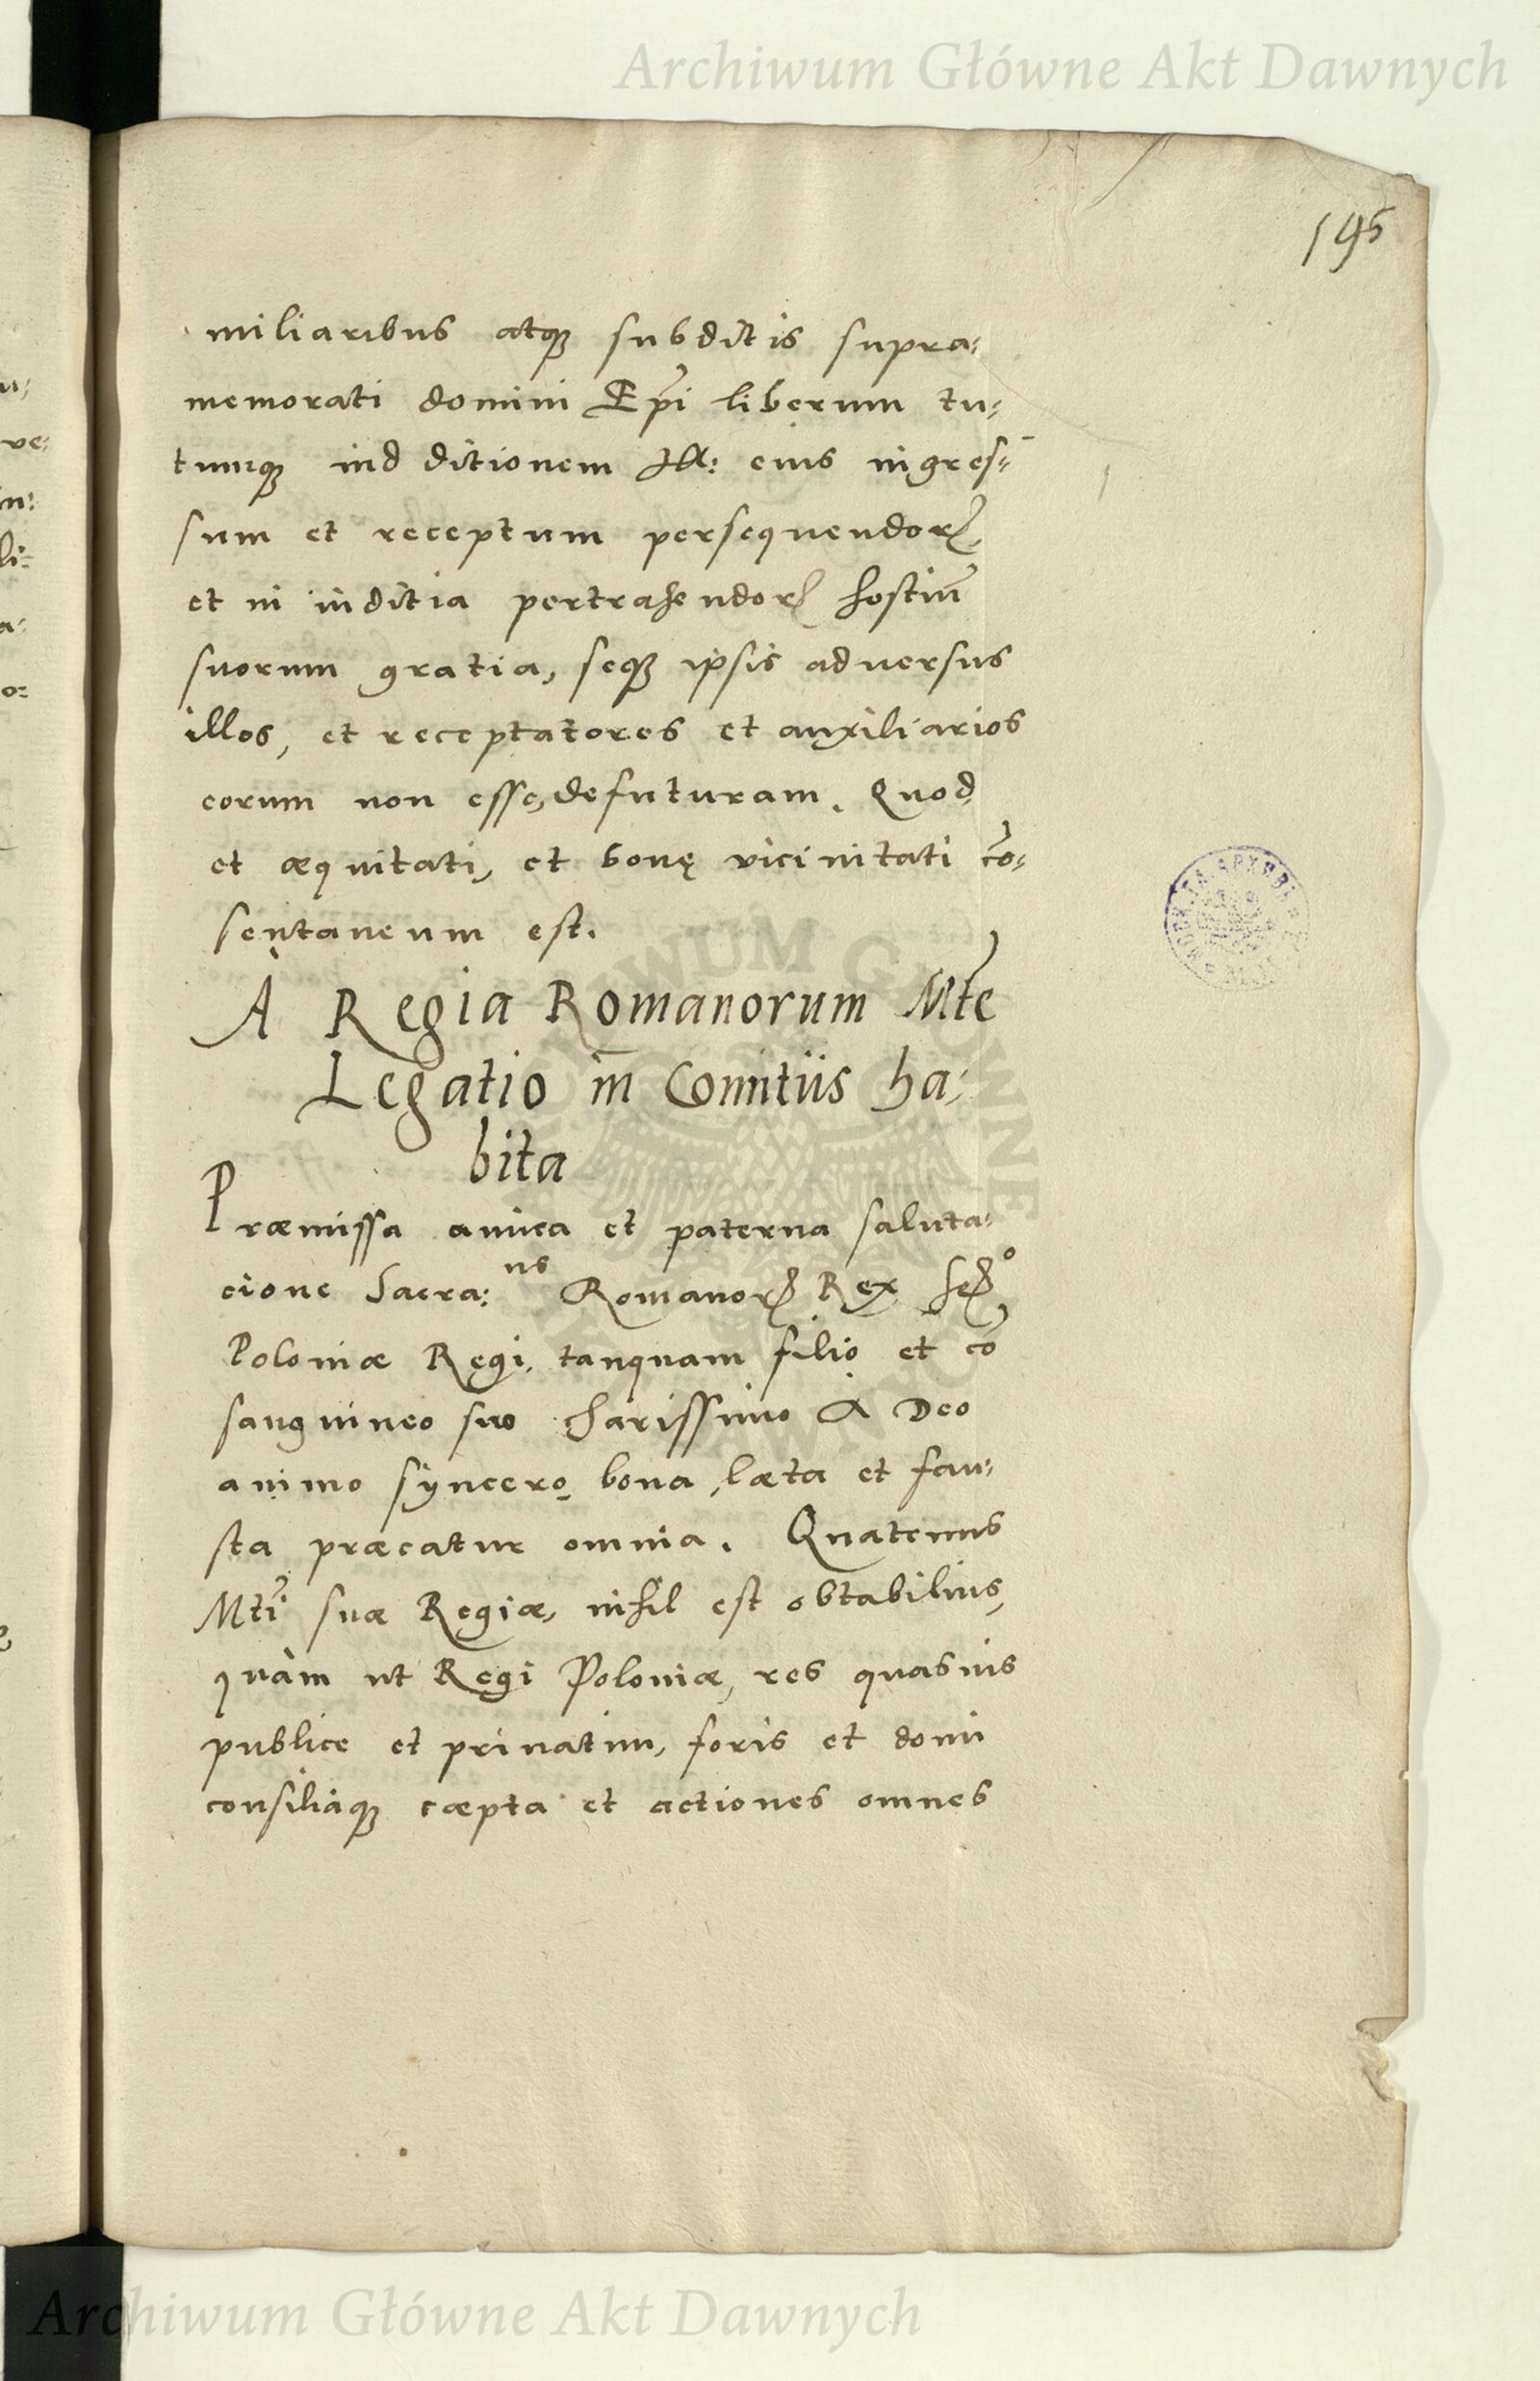 Archiwum Główne Akt Dawnych
195
miliaribus atq; subditis supra:
memorati domini Ep̃i liberum tu:
tumq; in ditionem Ill: eius ingres:
sum et receptum persequendoꝝ
et in inditia pertrahendoꝝ hostiũ
suorum gratia, seq; ipsis adversus
illos, et receptatores et auxiliarios
eorum non esse, defuturam. Quod
et æquitati, et bonę vicinitati cõ:
sentaneum est.
A Regia Romanorum Mte
Legatio in Comitiis ha:
bita
Præmissa amica et paterna saluta:
cione Sacra:ns Romanoꝝ Rex Serº
Poloniæ Regi, tanquam filio et cõ
sanguineo suo charissimo A Deo
animo syncero bona, læta et fau:
sta præcatur omnia. Quatenus
Mti suæ Regiæ, nihil est obtabilius,
quàm ut Regi Poloniæ, res quasuis
publice et priuatim, foris et domi
consiliaq; cæpta et actiones omnes
Archiwum Główne Akt Dawnych